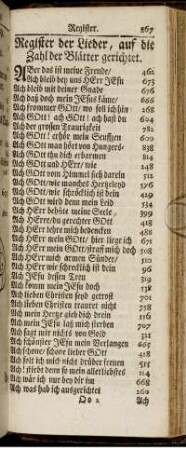 Register. 867
Register der Lieder, auf die
Zahl der Blätter gerichtet.
Aber das ist meine Freude/ 462
Ach bleib bey uns HErr JEsu 673
Ach bleib mit deiner Gnade 676
Ach daß doch mein JEsus käme/ 666
Ach frommer GOtt/ wo soll ich hin 268
Ach GOtt! ach GOtt! ach hast du 604
Ach der grossen Traurigkeit 782
Ach GOtt! erhör mein Seufftzen 600
Ach GOtt man hört von Hungers- 638
Ach GOtt thu dich erbarmen 634
Ach GOtt und HErr/ wie 248
Ach GOtt vom Himmel sich darein 551
Ach GOtt/ wie manches Hertzeleyd 515
Ach GOtt/ wie schröcklich ist dein
Ach GOtt wird denn mein Leid 534
Ach HErr behüte meine Seele, 399
Ach HErr/ du gerechter GOtt 418
Ach HErr lehre mich bedencken 683
Ach HErr mein GOtt/ hier liege ich
Ach HErr mein GOtt/ straff mich doch 263
Ach HErr mich armen Sünder/ 510
Ach HErr wie schröcklich ist dein 596
Ach JEsu dessen Treu 319
Ach komm mein JEsu doch
Ach lieben Christen seyd getrost 701
Ach lieben Christen trauret nicht 758
Ach mein Hertze gieb dich drein 514
Ach mein JEsu laß mich sterben 707
Ach sagt mir nichts von Gold 331
Ach schönster JEsu mein Verlangen 665
Ach schone/ schone lieber GOtt 428
Ach soll ich mich nicht drüber freuen 514
Ach! stirbt denn so mein allerliebstes 114
Ach wär ich nur bey dir im 668
Ach was hab ich ausgerichtet 260
Ach